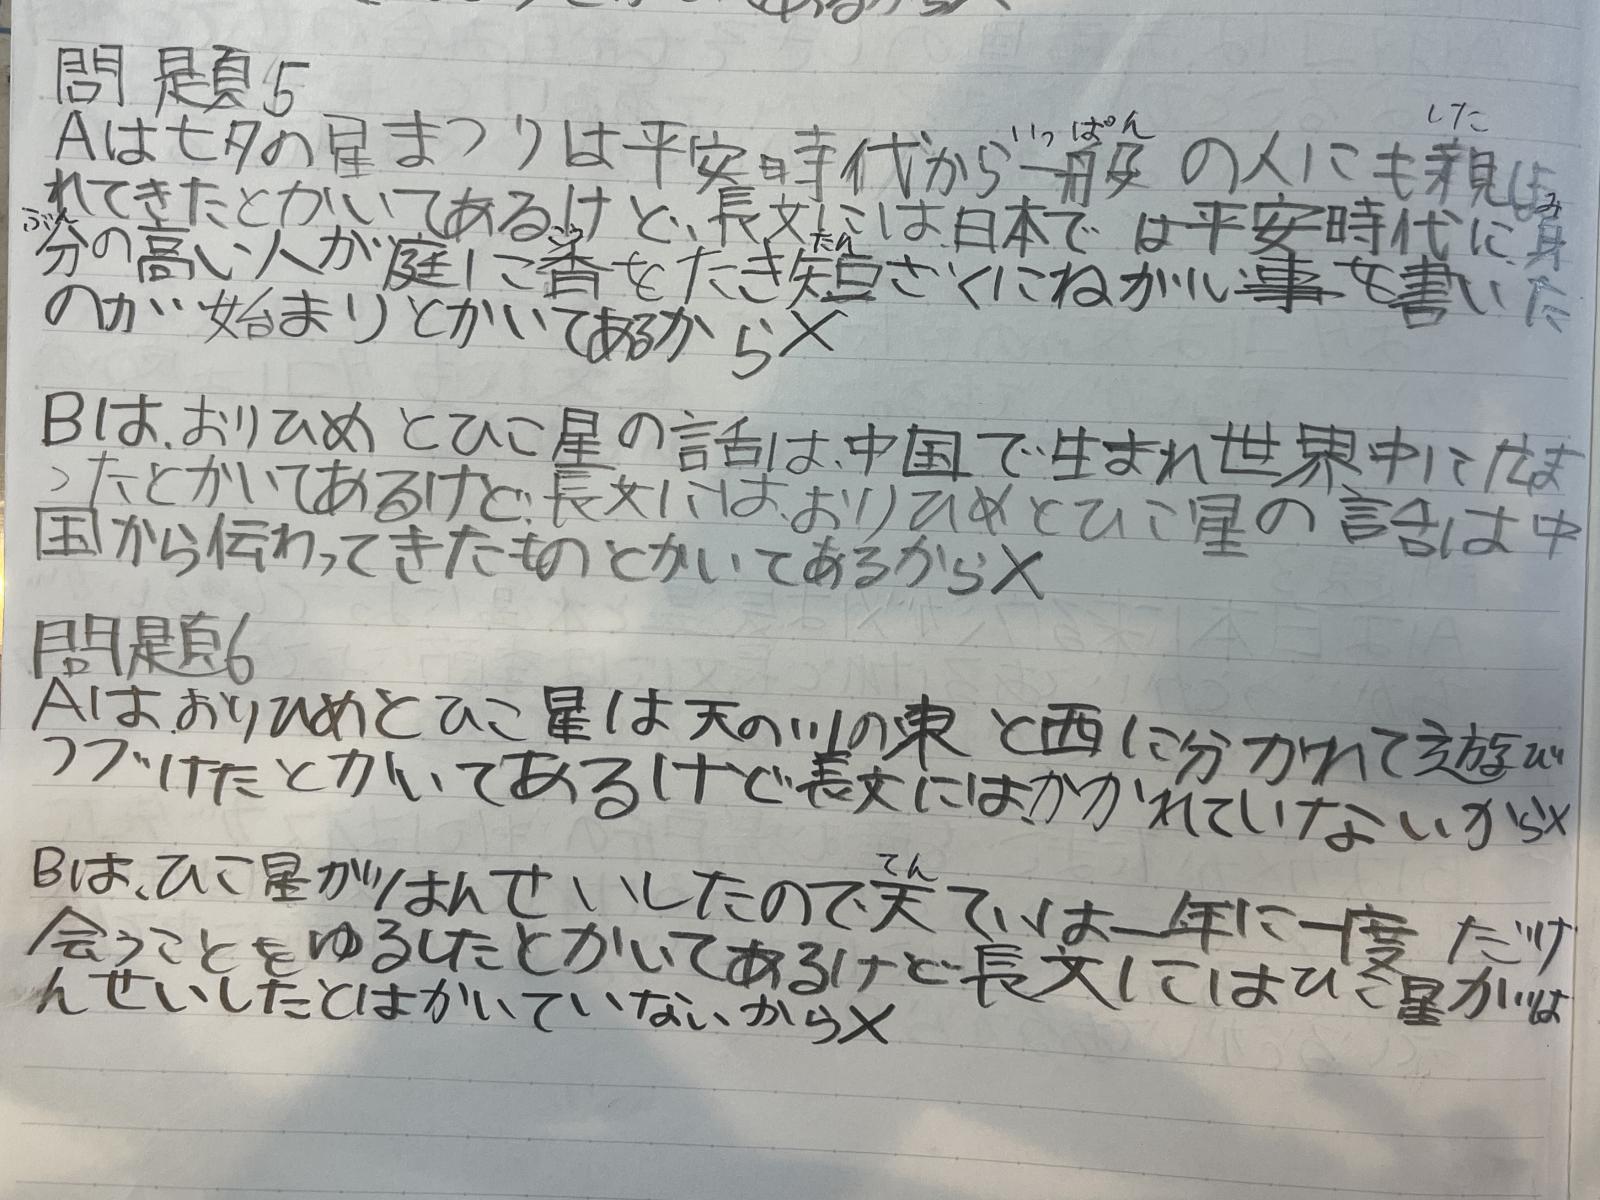 問題5
Aは七夕の星まつりは平安時代から一般の人にも親しま
いっぱん
した
れてきたとかいてあるけど、長文には日本では平安時代に身
み
分の高い人が庭に香をたき短ざくにねがい事を書いた
ぶん
こう
たん
のが始まりとかいてあるからX
Bは、おりひめとひこ星の話は、中国で生まれ世界中に広ま
ったとかいてあるけど、長文には、おりひめとひこ星の話は中
国から伝わってきたものとかいてあるからX
問題6
Aは、おりひめとひこ星は天の川の東と西に分かれて遊び
つづけたとかいてあるけど長文にはかかれていないからX
Bは、ひこ星がはんせいしたので天ていは一年に一度だけ
てん
会うことをゆるしたとかいてあるけど長文にはひこ星がは
んせいしたとはかいていないからX